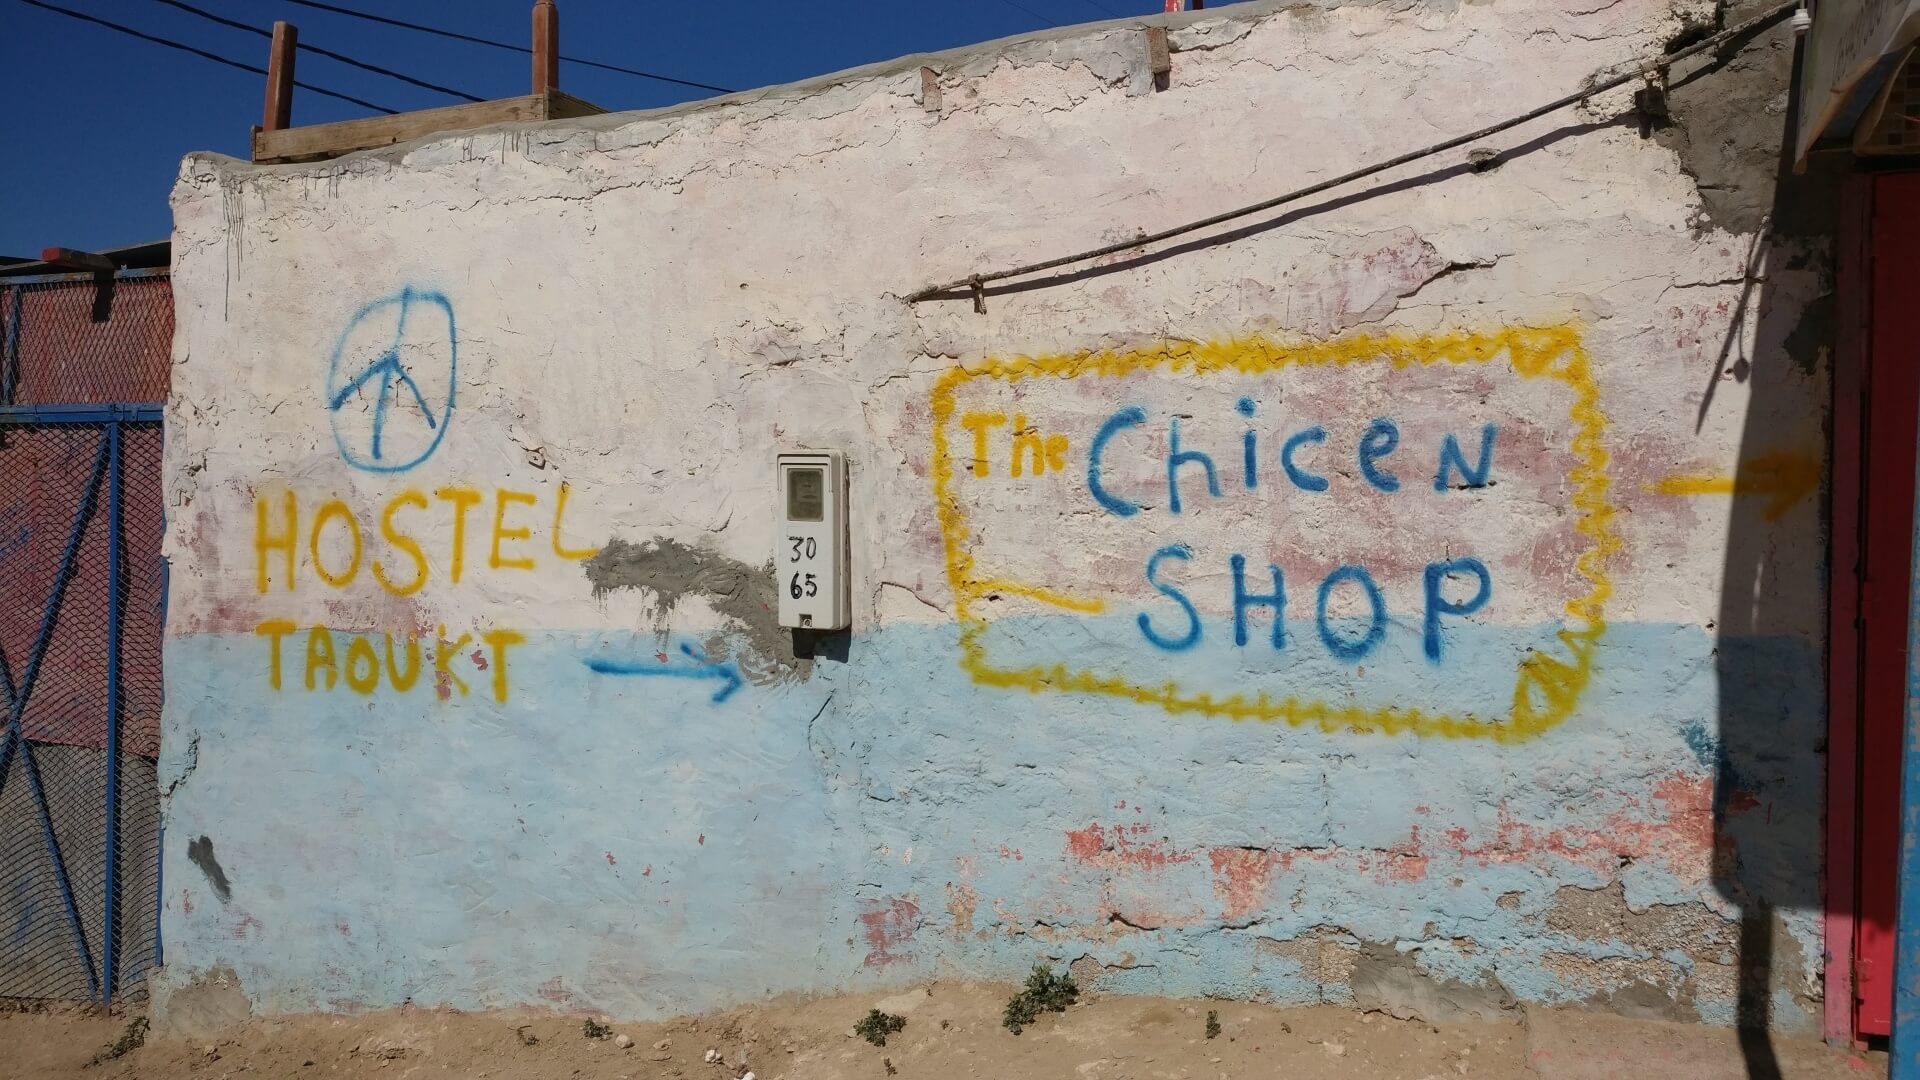 HOSTEL
TAOUKT
30
65
The Chicen
SHOP